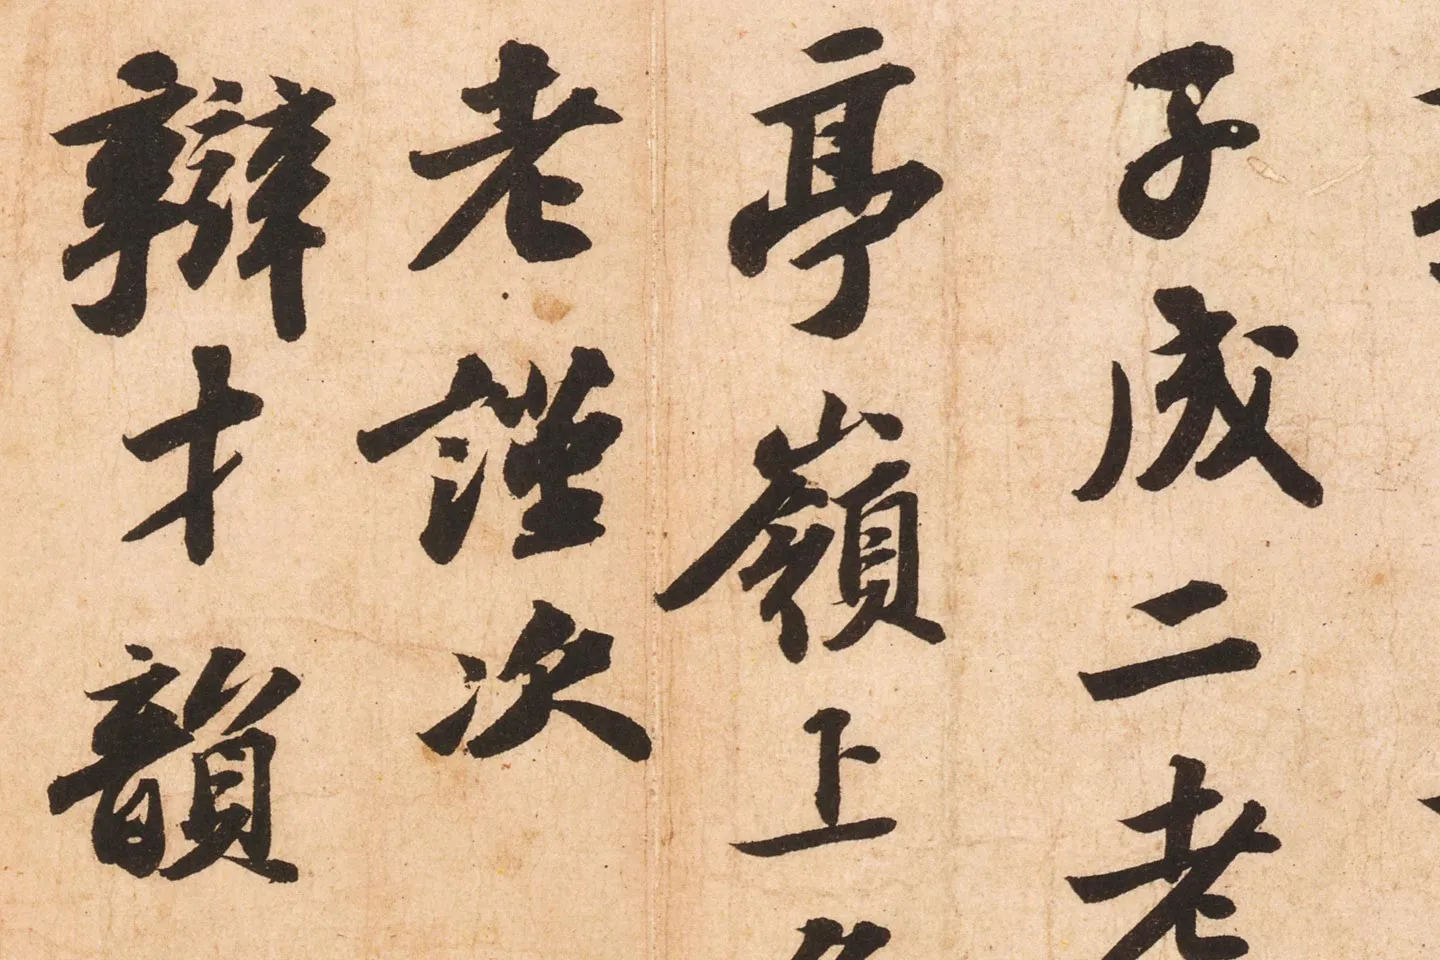 子成二老
亭嶺上名
老謹次
辯才韻